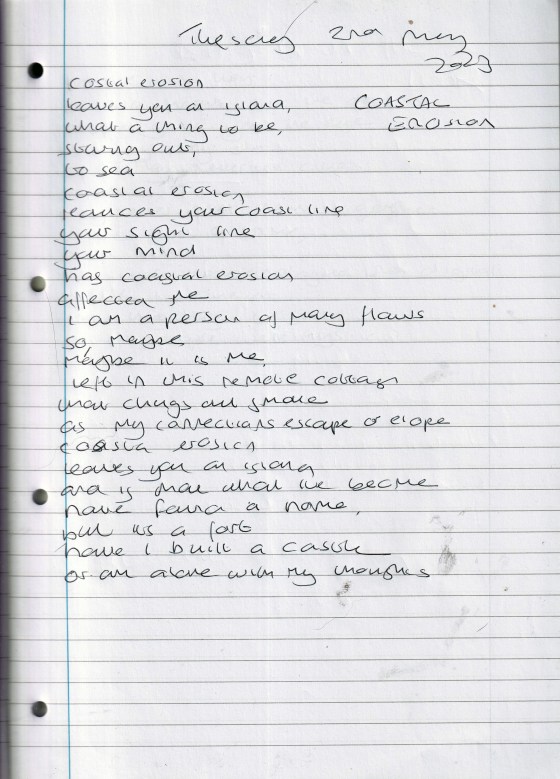 Tuesday 2nd May
2023
costal erosion
leaves you an island, COASTAL
what a thing to be, EROSION
staring out,
to sea
coastal erosion
reduces your coast line
your sight line
your mind
has coastal erosion
affected me
i am a person of many flaws
so, maybe
maybe it is me,
left in this remote cottage
that clings and
as my connections escape or elope
coastal erosion
leaves you an island
and is that what i've become
have found a home,
but its a fort
have i built a castle
or am alone with my thoughts